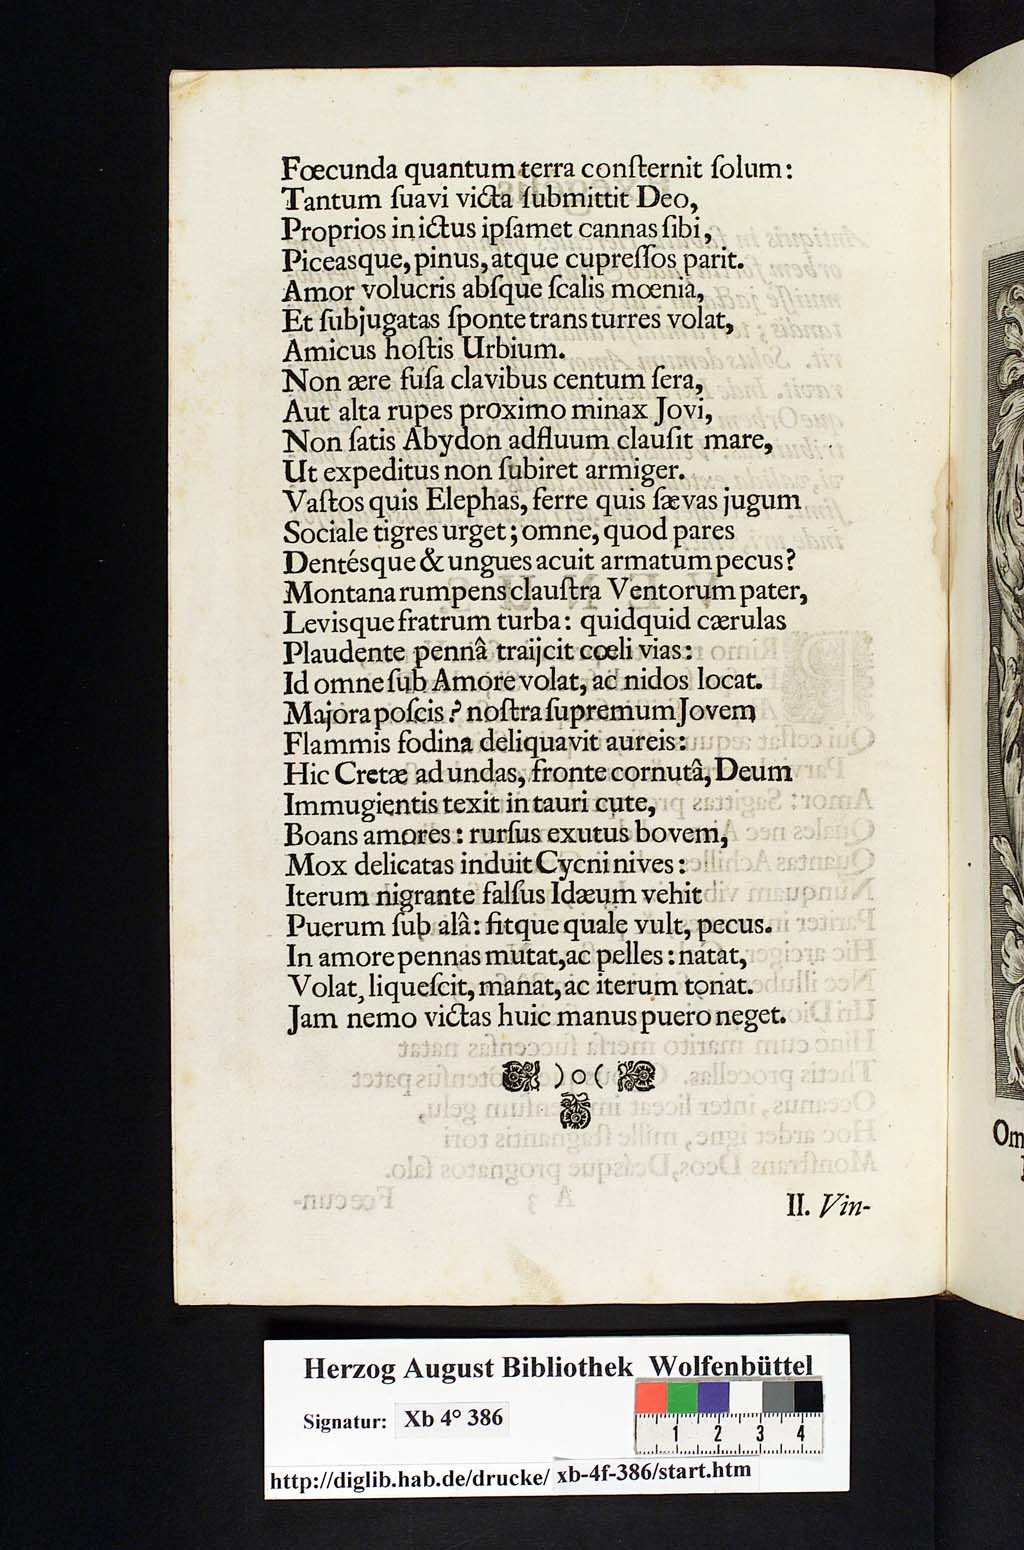 Fœcunda quantum terra conſternit ſolum:
Tantum ſuavi victa ſubmittit Deo,
Proprios in ictus ipſamet cannas ſibi,
Piceasque, pinus, atque cupreſſos parit.
Amor volucris absque ſcalis mœnia,
Et ſubjugatas ſponte trans turres volat,
Amicus hoſtis Urbium.
Non ære fuſa clavibus centum ſera,
Aut alta rupes proximo minax Jovi,
Non ſatis Abydon adfluum clauſit mare,
Ut expeditus non ſubiret armiger.
Vaſtos quis Elephas, ferre quis ſævas jugum
Sociale tigres urget; omne, quod pares
Dentésque & ungues acuit armatum pecus?
Montana rumpens clauſtra Ventorum pater,
Levisque fratrum turba: quidquid cærulas
Plaudente pennâ traijcit cœli vias:
Id omne ſub Amore volat, ac nidos locat.
Majora poſcis? noſtra ſupremum Jovem
Flammis fodina deliquavit aureis:
Hic Cretæ ad undas, fronte cornutâ, Deum
Immugientis texit in tauri cute,
Boans amores: rurſus exutus bovem,
Mox delicatas induit Cycni nives:
Iterum nigrante falſus Idæum vehit
Puerum ſub alâ: fitque quale vult, pecus.
In amore pennas mutat, ac pelles: natat,
Volat, liqueſcit, manat, ac iterum tonat.
Jam nemo victas huic manus puero neget.
) o (
II. Vin-
Om
Herzog August Bibliothek Wolfenbüttel
Signatur: Xb 4° 386
1 2 3 4
http://diglib.hab.de/drucke/ xb-4f-386/start.htm